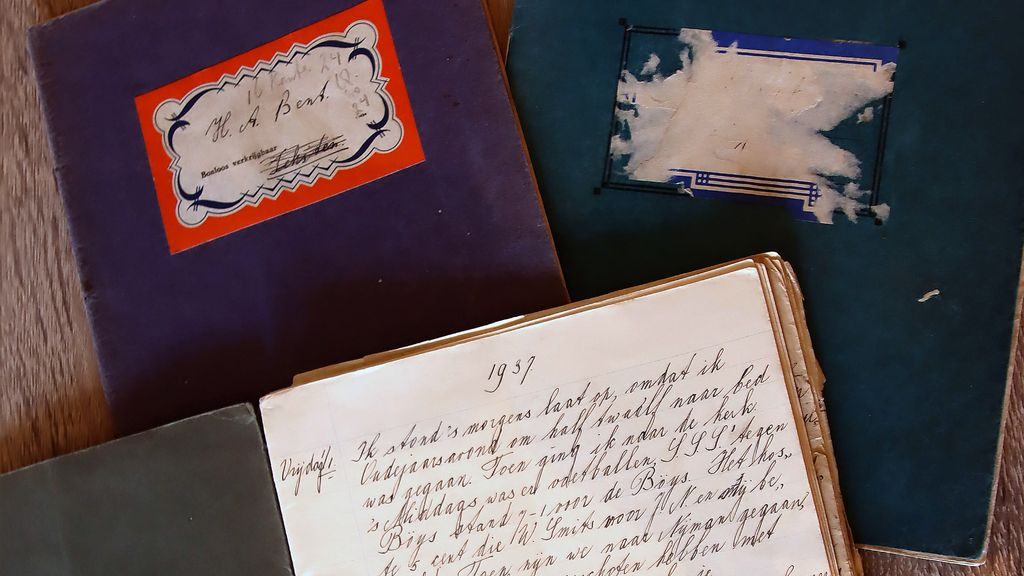 H. A. Bent.
Bonloos verkrijgbaar
1937
Vrijdag 1.
Ik stond 's morgens laat op, omdat ik
Oudejaarsavond om half twaalf naar bed
was gegaan. Toen ging ik naar de kerk.
's Middags was er voetballen, SSS' tegen
Böys stand 7-1 voor de Böys. Het kos-
te 5 cent die W. Smits voor
Toen zijn we naar Nijman gegaan,
hebben met